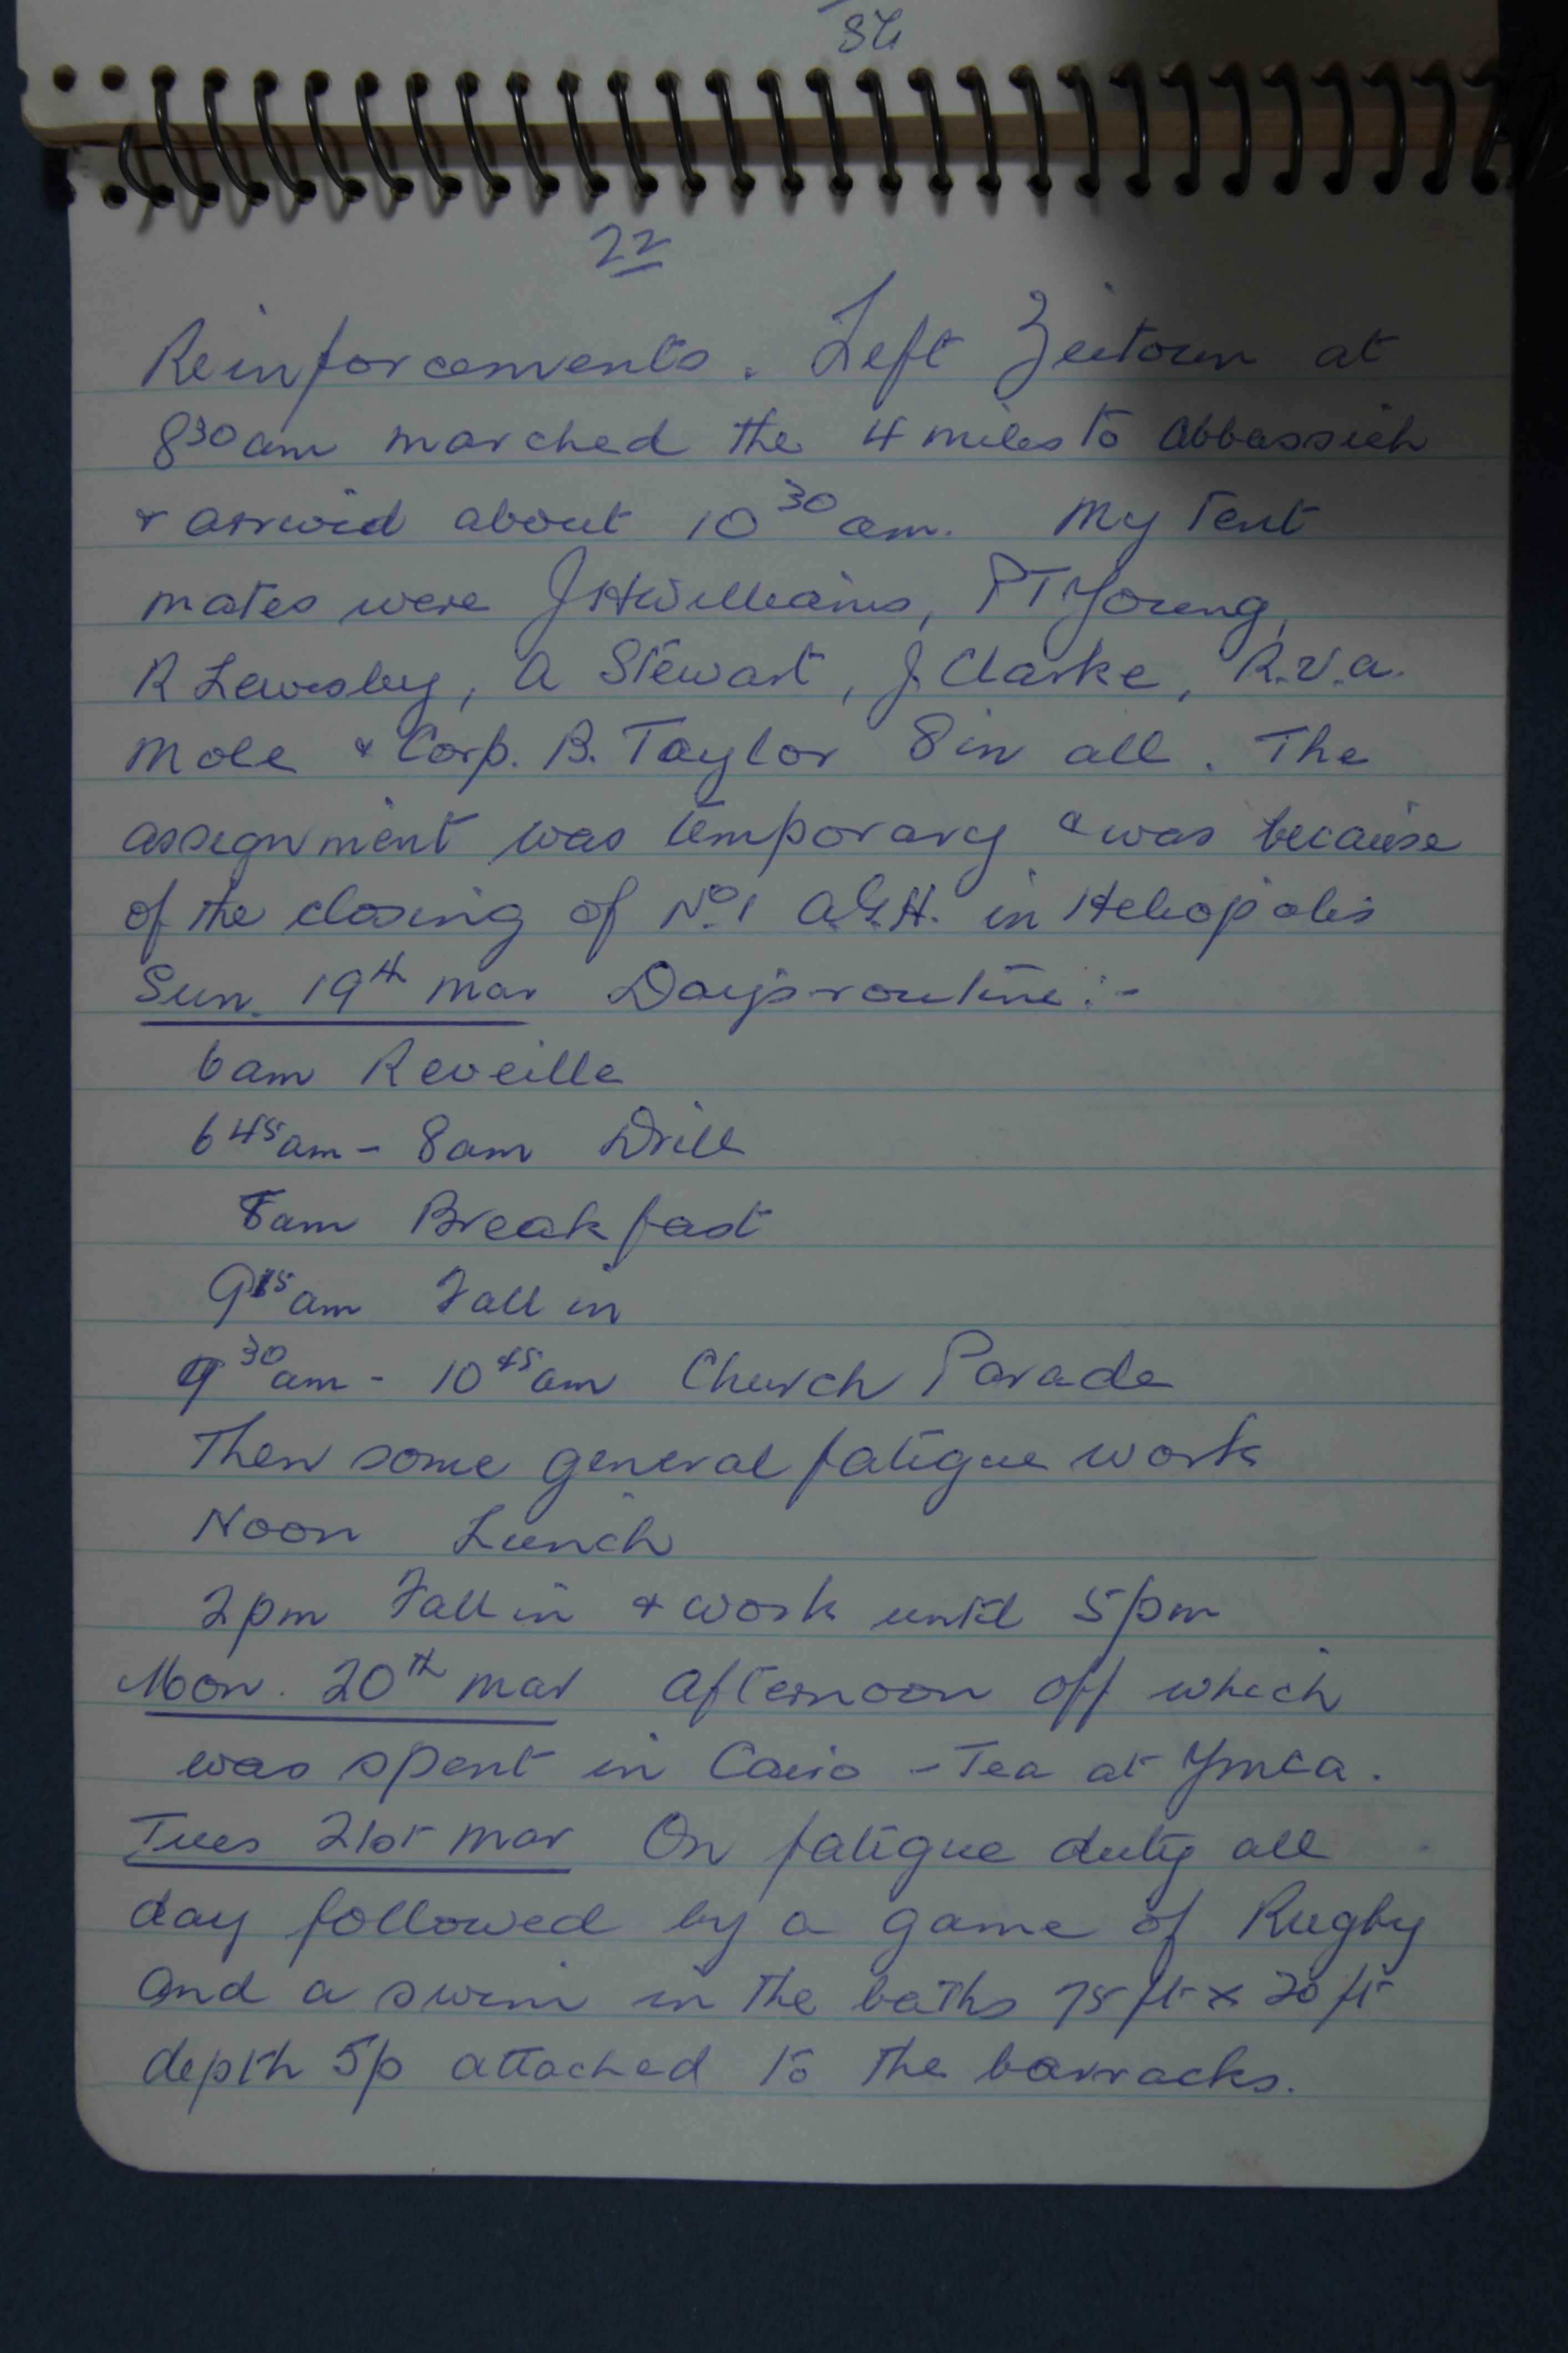 22
Reinforcements. Left Zeitoun at
8 30 am marched the 4 miles to Abbassieh
& arrived about 10 30 am. My tent
mates were J H Williams, P T Young,
R Lewesley, A Stewart, J. Clarke, R.V.A.
Mole & Corp. B. Taylor 8 in all. The
assignment was temporary & was because
of the closing of No. 1 A.G.H. in Heliopolis
Sun. 19th Mar Day's routine:-
6 am Reveille
6 45 am - 8 am Drill
8 am Breakfast
9 15 am Fall in
9 30 am - 10 45 am Church Parade
Then some general fatigue work
Noon Lunch
2 pm Fall in & work until 5 pm
Mon. 20th Mar Afternoon off which
was spent in Cairo - Tea at YMCA.
Tues 21st Mar On fatigue duty all
day followed by a game of Rugby
and a swim in the baths 75 ft x 20 ft
depth 5 attached to the barracks.